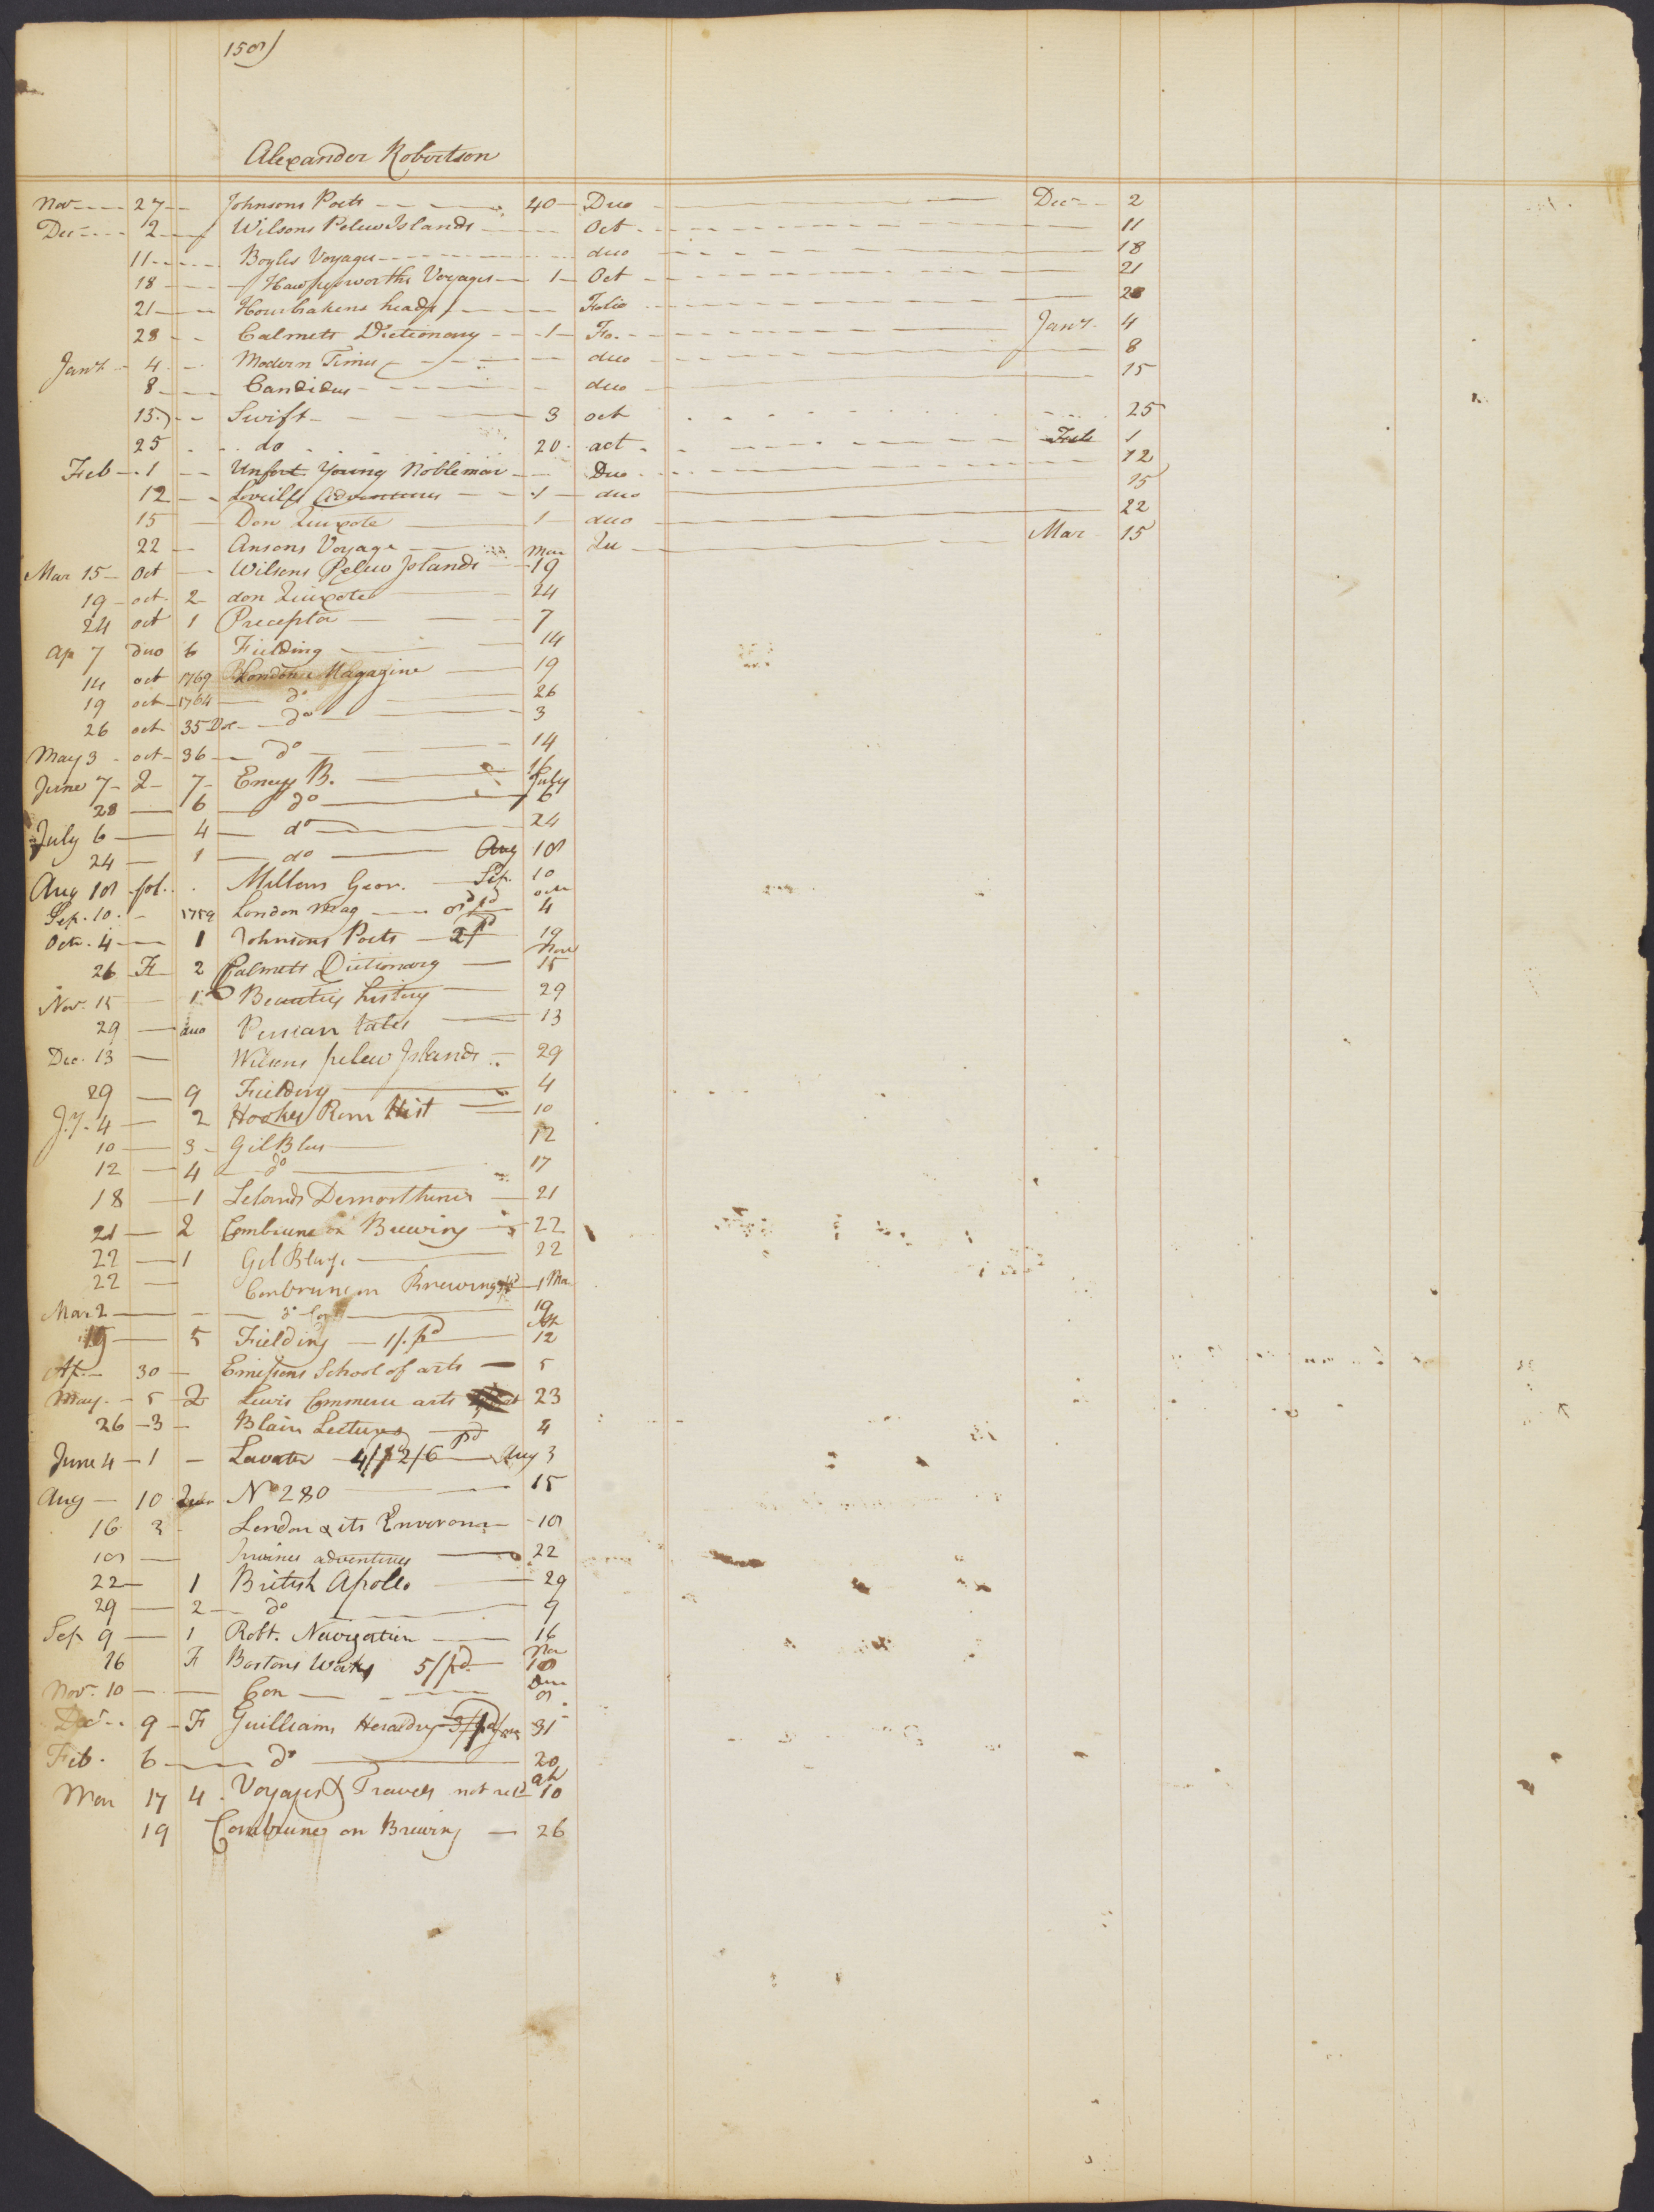 158)
Alexander Robertson
Nov 27 Johnsons Poets 40 Duo Decr 2
Dec 2 Wilsons Pelew Islands Oct 11
11 Boyles Voyages duo 18
18 Hawkesworths Voyages 1 Oct 21
21 Hourbakens heads Folio 28
28 Calmets Dictionary 1 Fo. Jany 4
Jany 4 Modern Times duo 8
8 Candidus duo 15
15 Swift 3 oct 25
25 do 20 oct Feb 1
Feb 1 Unfort. Young Nobleman Duo 12
12 Adventures 1 duo 15
15 Don Quixote 1 duo 22
22 Ansons Voyage Qu Mar 15
Mar 15 Oct Wilsons Pelew Islands Mar 19
19 oct 2 don Quixote 24
24 oct 1 Preceptor 7
Ap 7 duo 6 Fielding 14
14 oct 1769 London Magazine 19
19 oct 1764 do 26
26 oct 35 do 3
May 3 oct 36 do 14
June 7 Q 7 Encyy B. 16
28 6 do July 6
July 6 4 do 24
24 1 do Aug 18
Aug 18 fol. Millers Geor. Sep. 10
Sep. 10 1759 London Mag pd octr 4
Octr. 4 1 Johnsons Poets 2/pd 19
26 F 2 Calmets Dictionary Nov 15
Nov. 15 1 history 29
29 duo Persian tales 13
Dec. 13 Wilsons pelew Islands 29
29 9 Fielding 4
J.y. 4 2 Hookes Rom Hist 10
10 3 Gil Blas 12
12 4 do 17
18 1 Lelands Demosthenes 21
21 2 Combrune on Brewing 22
22 1 Gil Blas. 22
22 Combrune on Brewing 1 Mar
Mar 2 do 19
19 5 Fielding 1/. pd Ap 12
Ap. 30 Emersons School of arts 5
May 5 2 Lewis Commerce arts 23
26 3 Blairs Lectures pd 4
June 4 1 Lavater 4/ 2/6 Aug 3
Aug 10 No 280 15
16 3 London & its Environs 18
18 Irwines adventures 22
22 1 British Apollo 29
29 2 do 9
Sep 9 1 Robt. Navigation 16
16 F Bostons Works 5/pd. Nov 10
Nov. 10 Con
Decr 9 F Guilliams Heraldry 31
Feb. 6 do 20
Mar 17 4 Voyages & Travels not 10
19 Combrune on Brewing 26